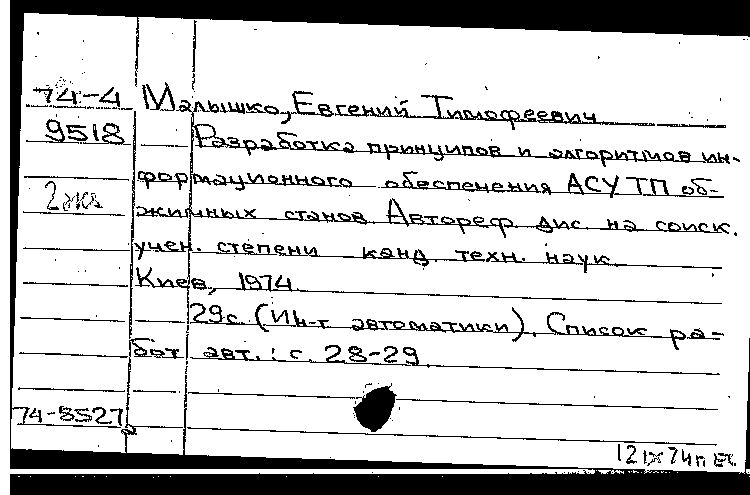 74-4 Малышко, Евгений Тимофеевич
9518 Разработка принципов и алгоритмов ин-
формационного обеспечения АСУ ТП об-
2 экз
жимных станов. Автореф. дис. на соиск.
учен. степени канд. техн. наук.
Киев, 1974.
29 с. (Ин-т автоматики). Список ра-
бот авт.: с. 28-29.
74-8527
12 IX 74 г.